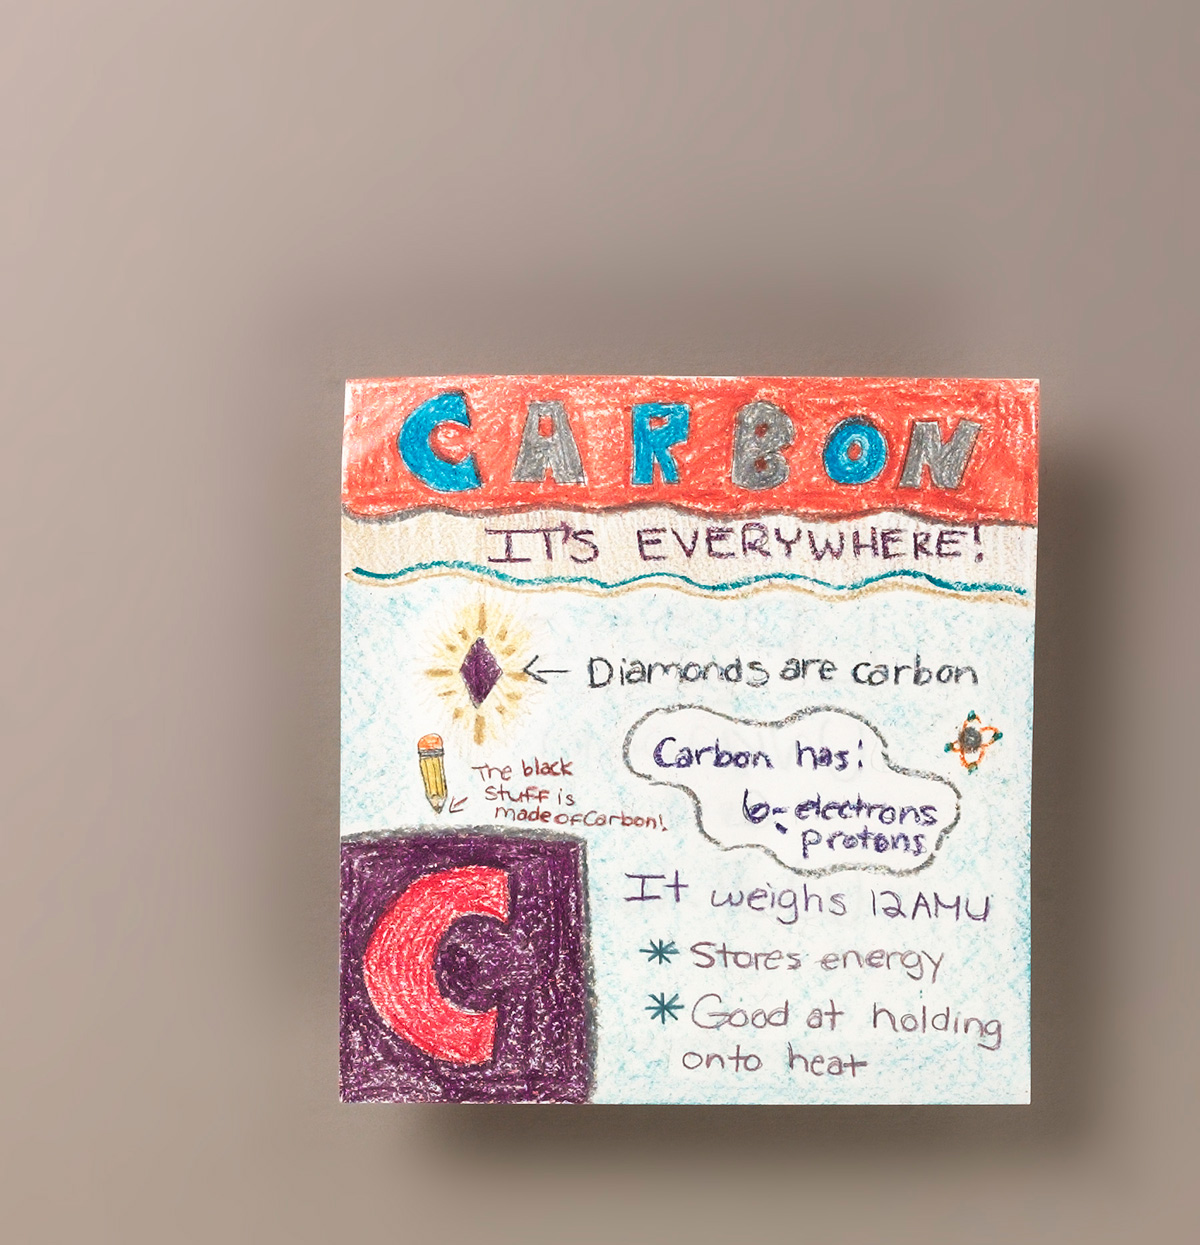 CARBON
IT'S EVERYWHERE!
Diamonds are carbon
The black
stuff is
made of Carbon!
Carbon has:
6- electrons
protons
It weighs 12AMU
* Stores energy
* Good at holding
onto heat
C